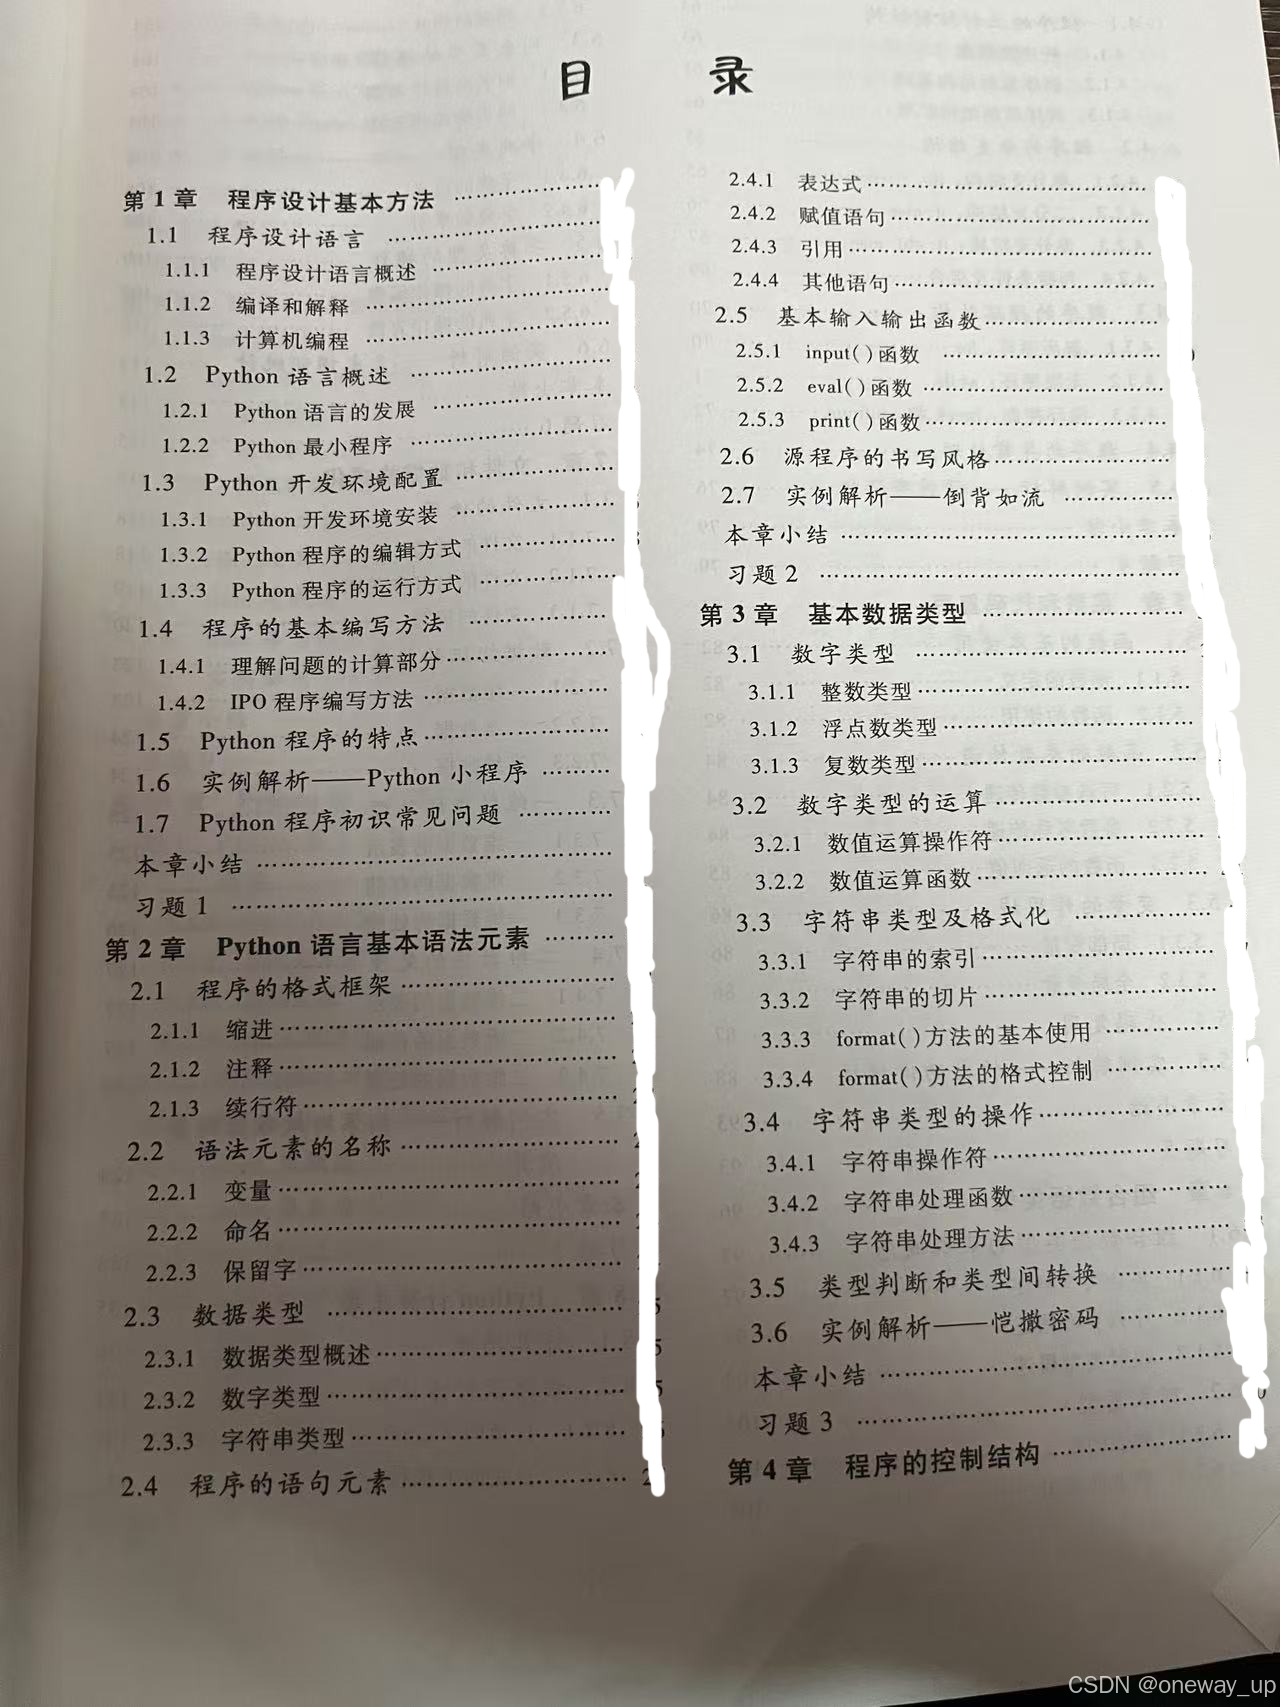 目 录
第1章 程序设计基本方法
1.1 程序设计语言
1.1.1 程序设计语言概述
1.1.2 编译和解释
1.1.3 计算机编程
1.2 Python 语言概述
1.2.1 Python 语言的发展
1.2.2 Python 最小程序
1.3 Python 开发环境配置
1.3.1 Python 开发环境安装
1.3.2 Python 程序的编辑方式
1.3.3 Python 程序的运行方式
1.4 程序的基本编写方法
1.4.1 理解问题的计算部分
1.4.2 IPO 程序编写方法
1.5 Python 程序的特点
1.6 实例解析——Python 小程序
1.7 Python 程序初识常见问题
本章小结
习题 1
第2章 Python 语言基本语法元素
2.1 程序的格式框架
2.1.1 缩进
2.1.2 注释
2.1.3 续行符
2.2 语法元素的名称
2.2.1 变量
2.2.2 命名
2.2.3 保留字
2.3 数据类型
2.3.1 数据类型概述
2.3.2 数字类型
2.3.3 字符串类型
2.4 程序的语句元素
2.4.1 表达式
2.4.2 赋值语句
2.4.3 引用
2.4.4 其他语句
2.5 基本输入输出函数
2.5.1 input()函数
2.5.2 eval()函数
2.5.3 print()函数
2.6 源程序的书写风格
2.7 实例解析——倒背如流
本章小结
习题 2
第3章 基本数据类型
3.1 数字类型
3.1.1 整数类型
3.1.2 浮点数类型
3.1.3 复数类型
3.2 数字类型的运算
3.2.1 数值运算操作符
3.2.2 数值运算函数
3.3 字符串类型及格式化
3.3.1 字符串的索引
3.3.2 字符串的切片
3.3.3 format()方法的基本使用
3.3.4 format()方法的格式控制
3.4 字符串类型的操作
3.4.1 字符串操作符
3.4.2 字符串处理函数
3.4.3 字符串处理方法
3.5 类型判断和类型间转换
3.6 实例解析——恺撒密码
本章小结
习题 3
第4章 程序的控制结构
CSDN @oneway_up